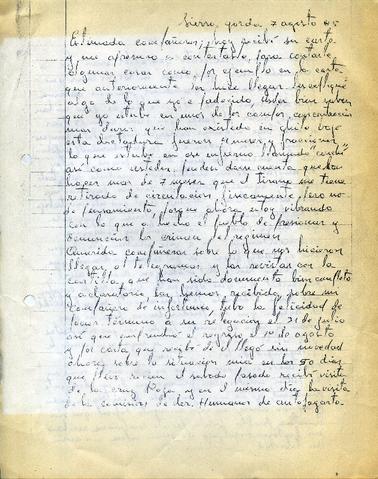 Sierra gorda 7 agosto 85
Estimada compañeros; hoy recibí su carta
y me apresuro a contestarla para contarle
algunas cosas como por ejemplo en la carta
que anteriormente les hice llegar
algo de lo que yo e padecido Ustedes bien saben
que yo estuve en unos de los campos concentración
mas duros que han existido en Chile bajo
esta dictadura
lo que estuve en ese infierno llamado
así como ustedes pueden darse cuenta que
hacen mas de 7 meses que el tirano me tiene
retirado de circulacion fisicamente pero no
de pensamiento, porque ahora estoy vibrando
con lo que a hecho el pueblo de presionar y
denunciar los crimen del regimen
Querida compañeras sobre lo que nos hicieron
llegar, el telegrama, y las revistas con la
cartita, que han sido documento bien completo
y aclaratorio, las hemos recibido, sobre mi
compañero de infortunio, tubo la felicidad de
poner termino a su relegacion el 31 de julio
asi que emprendió el regreso el 1º de agosto
y por carta que llegó sin novedad
ahora sobre la situacion mia en los 50 dias
que llevo recien el sabado pasado recibí visita
de la cruz Roja y en el mismo dia la visita
de la comision de der. Humanos de antofagasta.